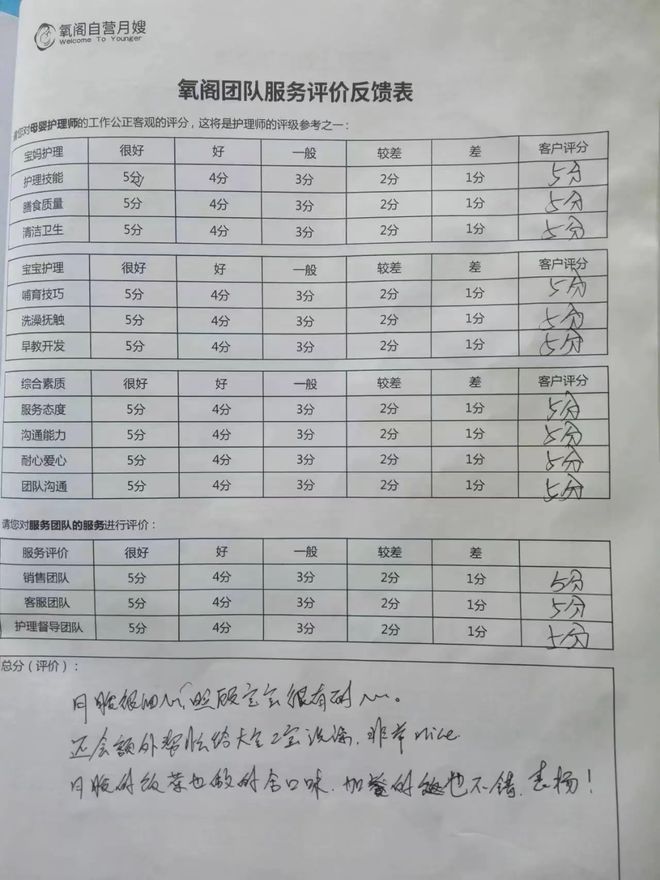 氧阁自营月嫂
Welcome To Younger
氧阁团队服务评价反馈表
请您对母婴护理师的工作公正客观的评分，这将是护理师的评级参考之一：
宝妈护理 很好 好 一般 较差 差 客户评分
护理技能 5分 4分 3分 2分 1分 5分
膳食质量 5分 4分 3分 2分 1分 5分
清洁卫生 5分 4分 3分 2分 1分 5分
宝宝护理 很好 好 一般 较差 差 客户评分
哺育技巧 5分 4分 3分 2分 1分 5分
洗澡抚触 5分 4分 3分 2分 1分 5分
早教开发 5分 4分 3分 2分 1分 5分
综合素质 很好 好 一般 较差 差 客户评分
服务态度 5分 4分 3分 2分 1分 5分
沟通能力 5分 4分 3分 2分 1分 5分
耐心爱心 5分 4分 3分 2分 1分 5分
团队沟通 5分 4分 3分 2分 1分 5分
请您对服务团队的服务进行评价：
服务评价 很好 好 一般 较差 差
销售团队 5分 4分 3分 2分 1分 5分
客服团队 5分 4分 3分 2分 1分 5分
护理督导团队 5分 4分 3分 2分 1分 5分
总分（评价）：
月嫂很细心，照顾宝宝很有耐心。
还会额外帮忙给大宝二宝洗澡，非常nice
月嫂的饭菜也做的合口味，加餐的也不错，表扬！